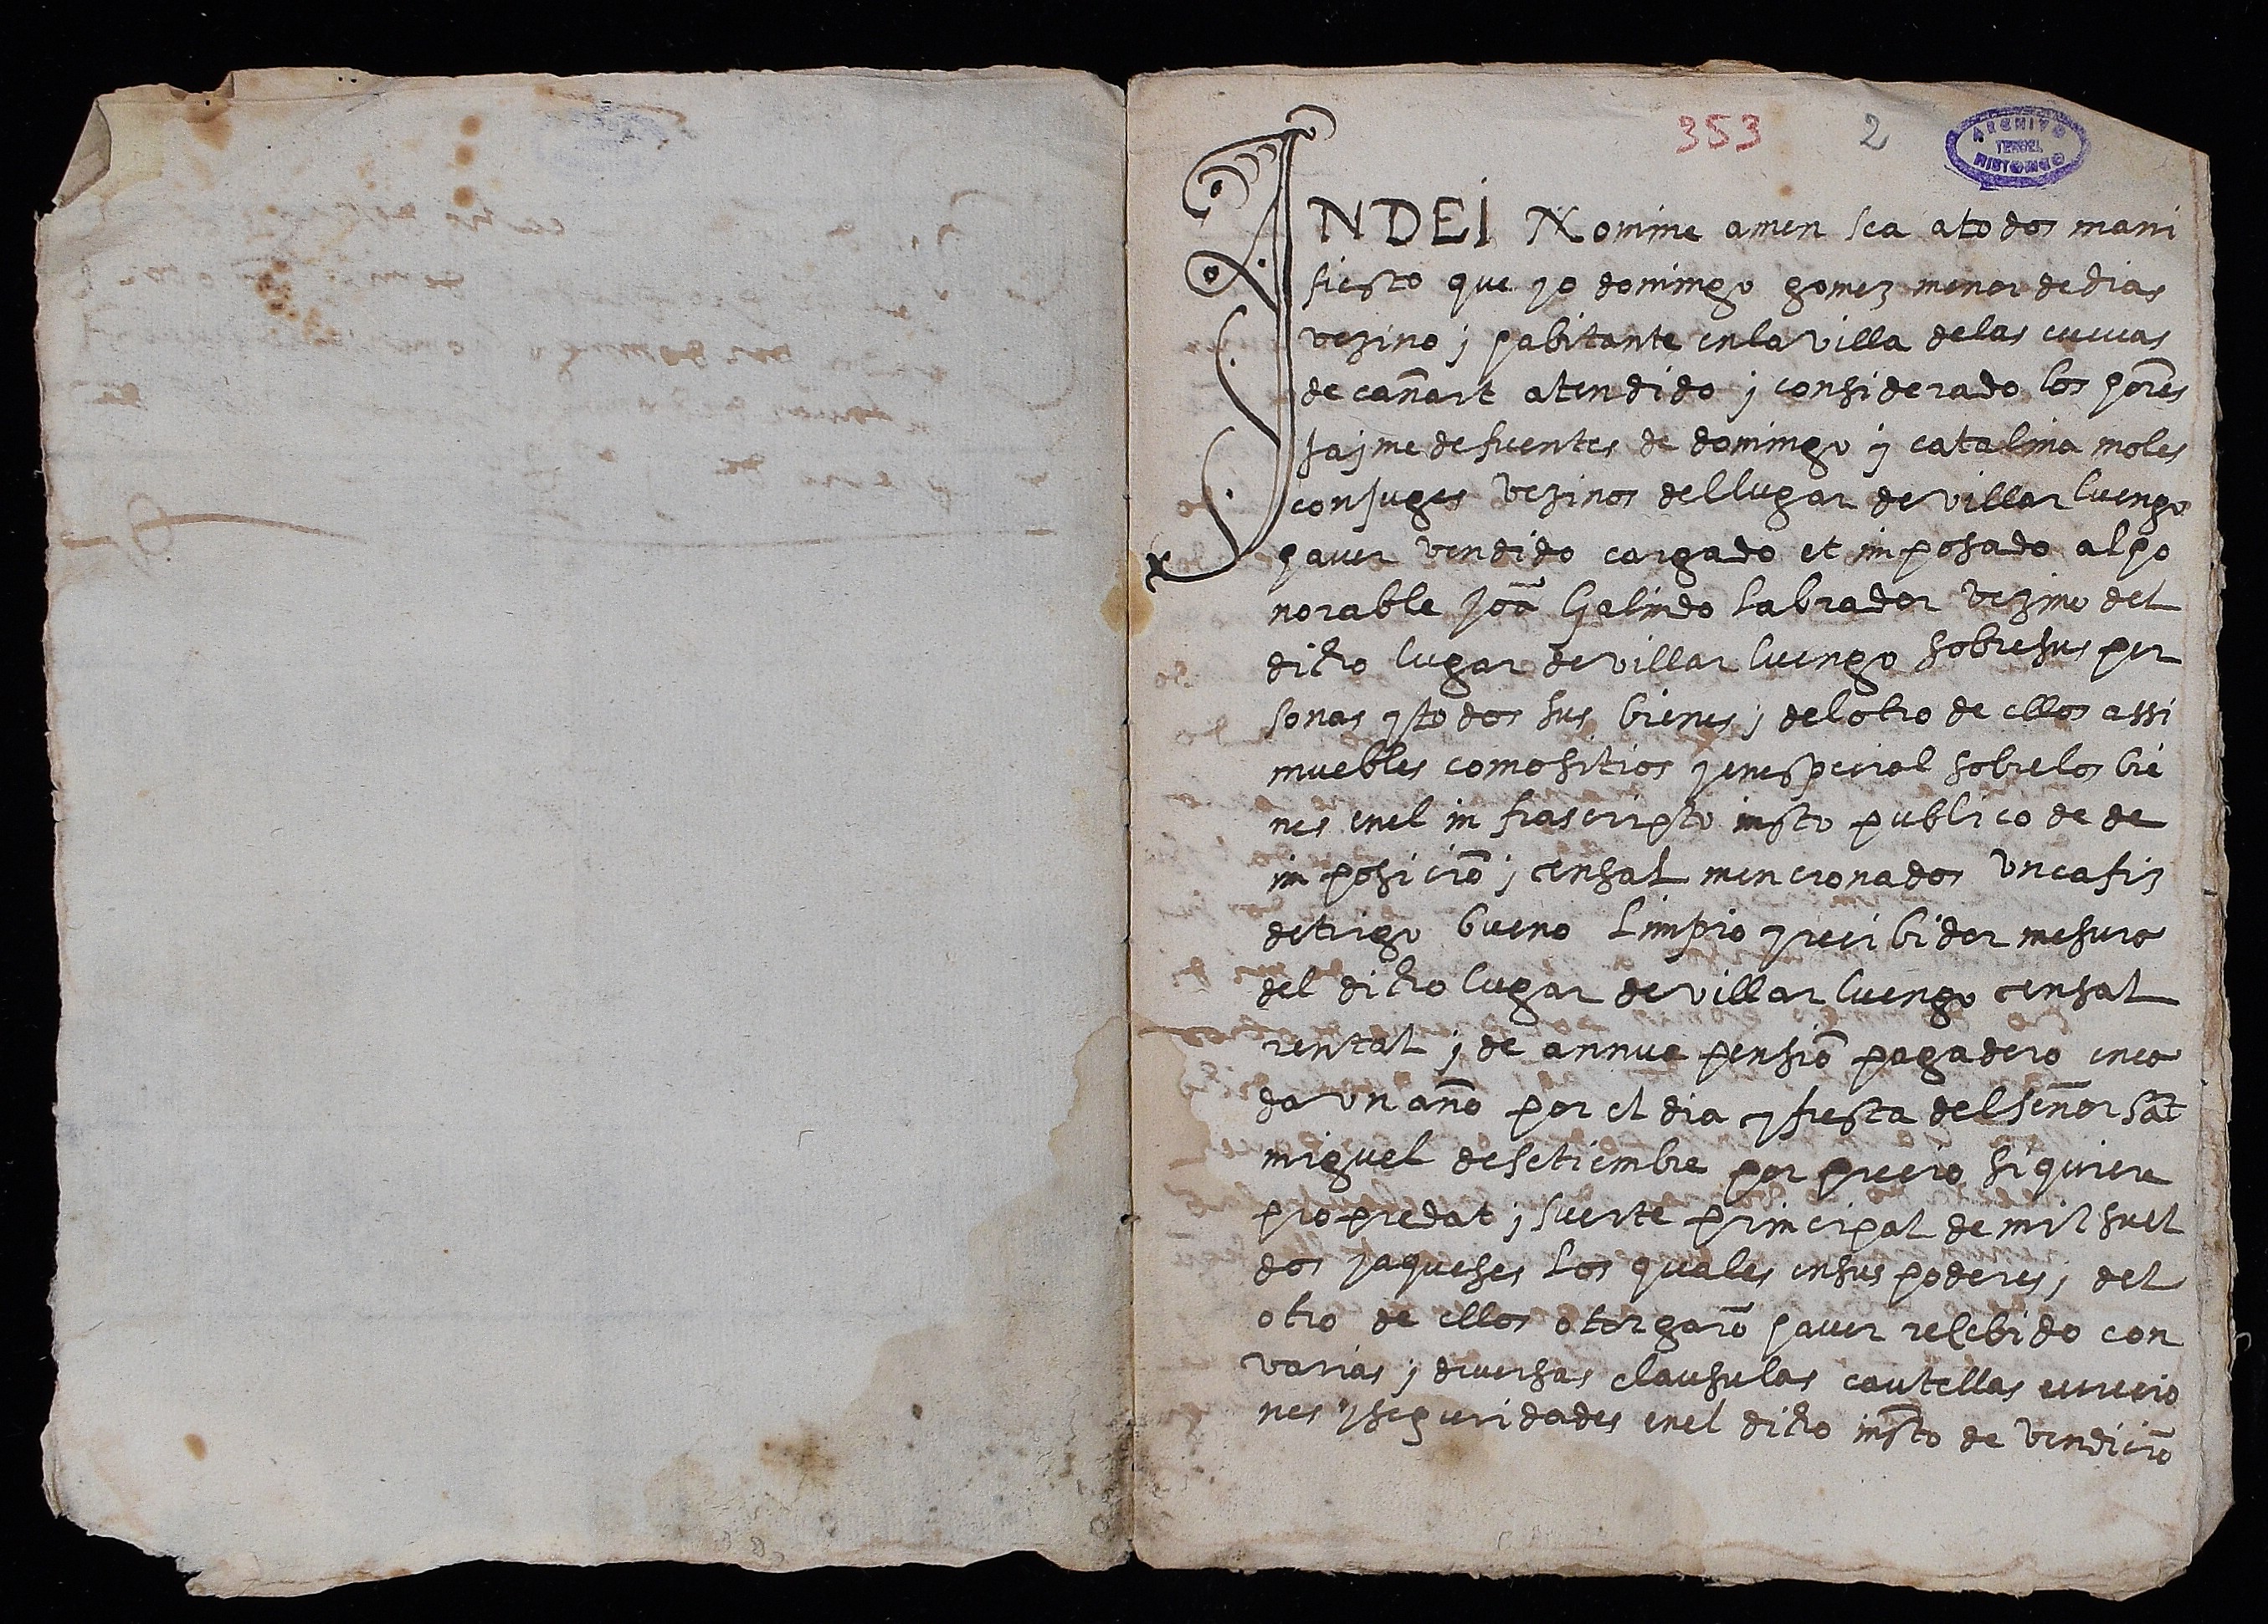 353 2
ARCHIVO
TERUEL
HISTORICO
IN DEI Nomine amen sea atodos mani
fiesto que yo domingo gomez menor de dias
vezino y habitante enla villa delas cueuas
de cañart atendido y considerado los hon̄res
Jayme de fuentes de domingo y catalina moles
conjuges vezinos dellugar de villar luengo
hauer vendido cargado et imposado al ho
norable joā Galindo labrador vezino del
dicho lugar de villar luengo sobre sus per
sonas y todos sus bienes y del otro de ellos assi
muebles como sitios y en especial sobre los biē
nes enel infrascripto insto publico de de
imposiciō y censal mencionados vn cafiz
de trigo bueno limpio y recibidor mesura
del dicho lugar de villar luengo censal
rental y de annua pensiō pagadero en ca
da vn año por el dia y fiesta del señor sāt
miguel de setiembre por precio siquiere
propiedat y suerte principal de mil suel
dos jaqueses los quales en sus poderes y del
otro de ellos otorgarō hauer rescebido con
varias y diuersas clausulas cautellas euiccio
nes y seguridades enel dicho insto de vendiciō